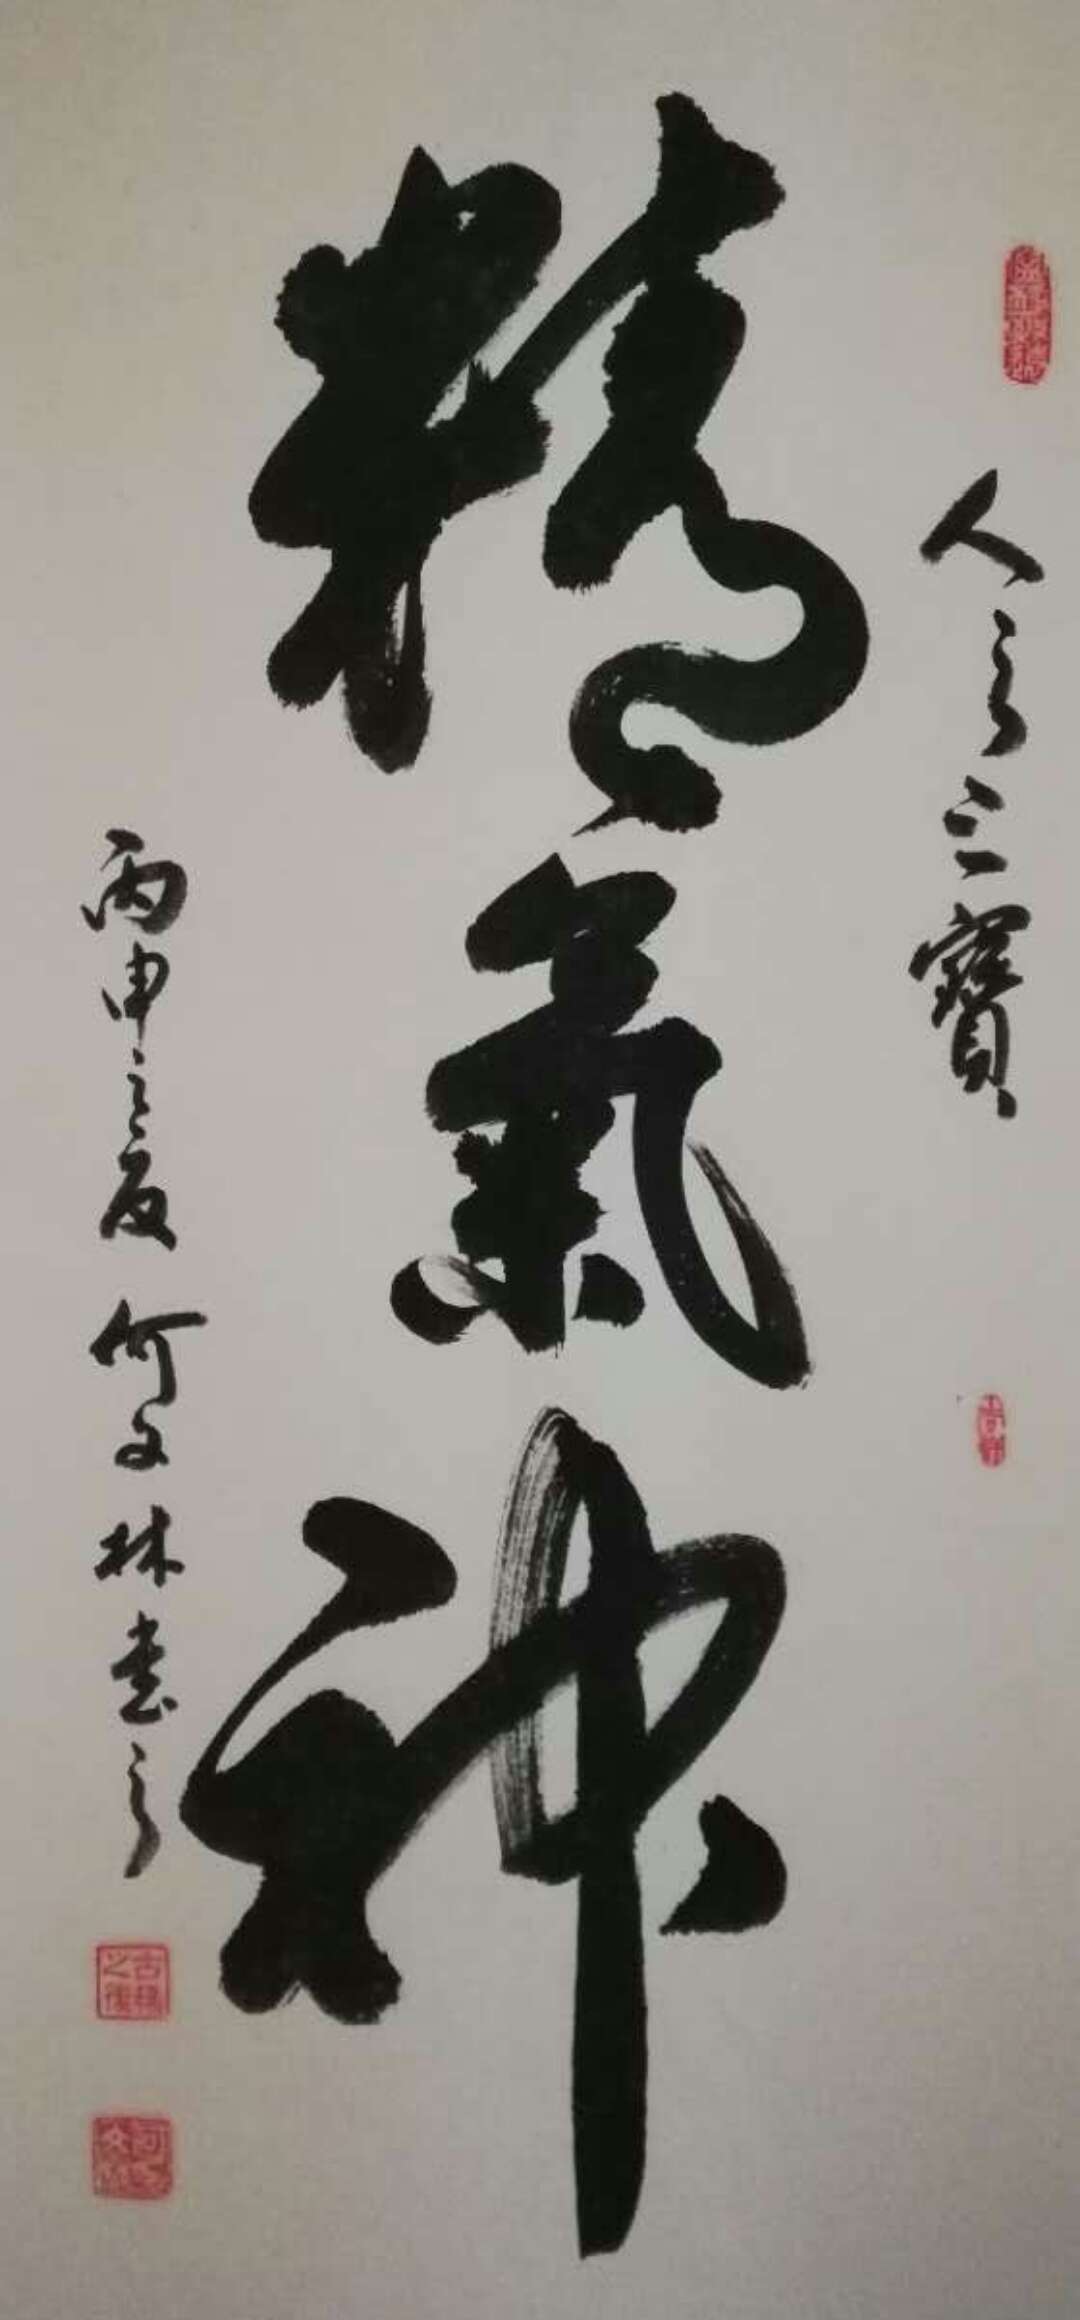 人之三寶
精氣神
丙申之夏何文林書之